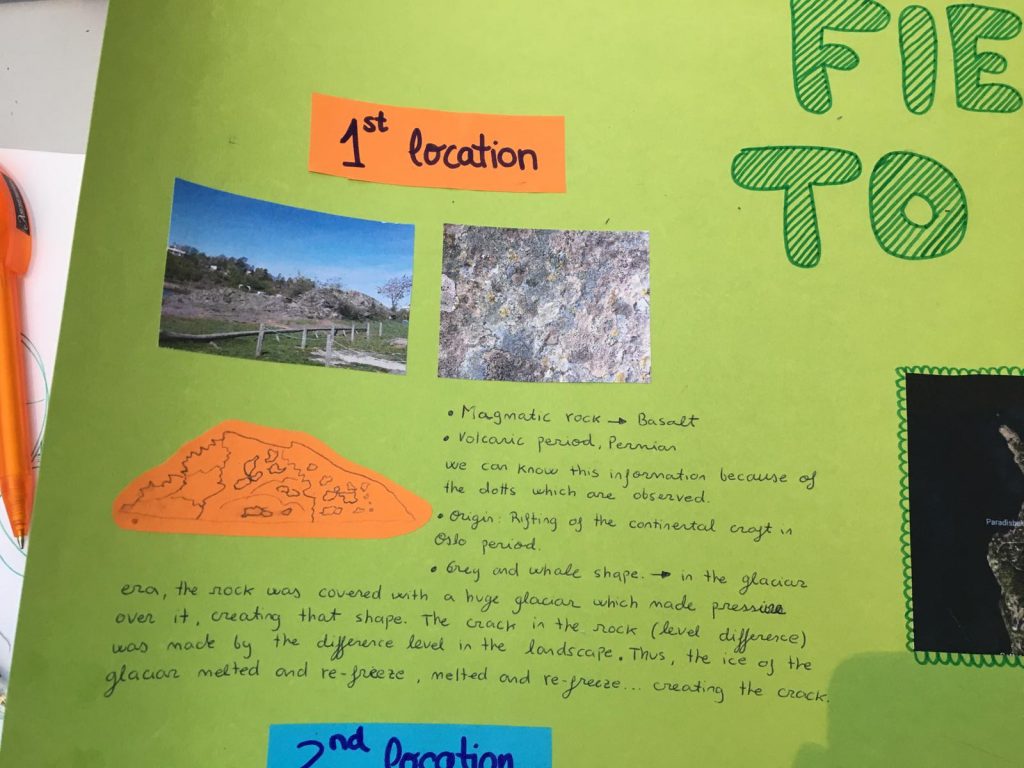 FIE
TO
1st location
• Magmatic rock → Basalt
• Volcanic period, Permian
we can know this information because of
the dotts which are observed.
• Origin: Rifting of the continental croft in
Oslo period.
• Grey and whale shape. → in the glaciar
era, the rock was covered with a huge glaciar which made pressure
over it, creating that shape. The crack in the rock (level difference)
was made by the difference level in the landscape. Thus, the ice of the
glaciar melted and re-freeze, melted and re-freeze... creating the crack.
2nd location